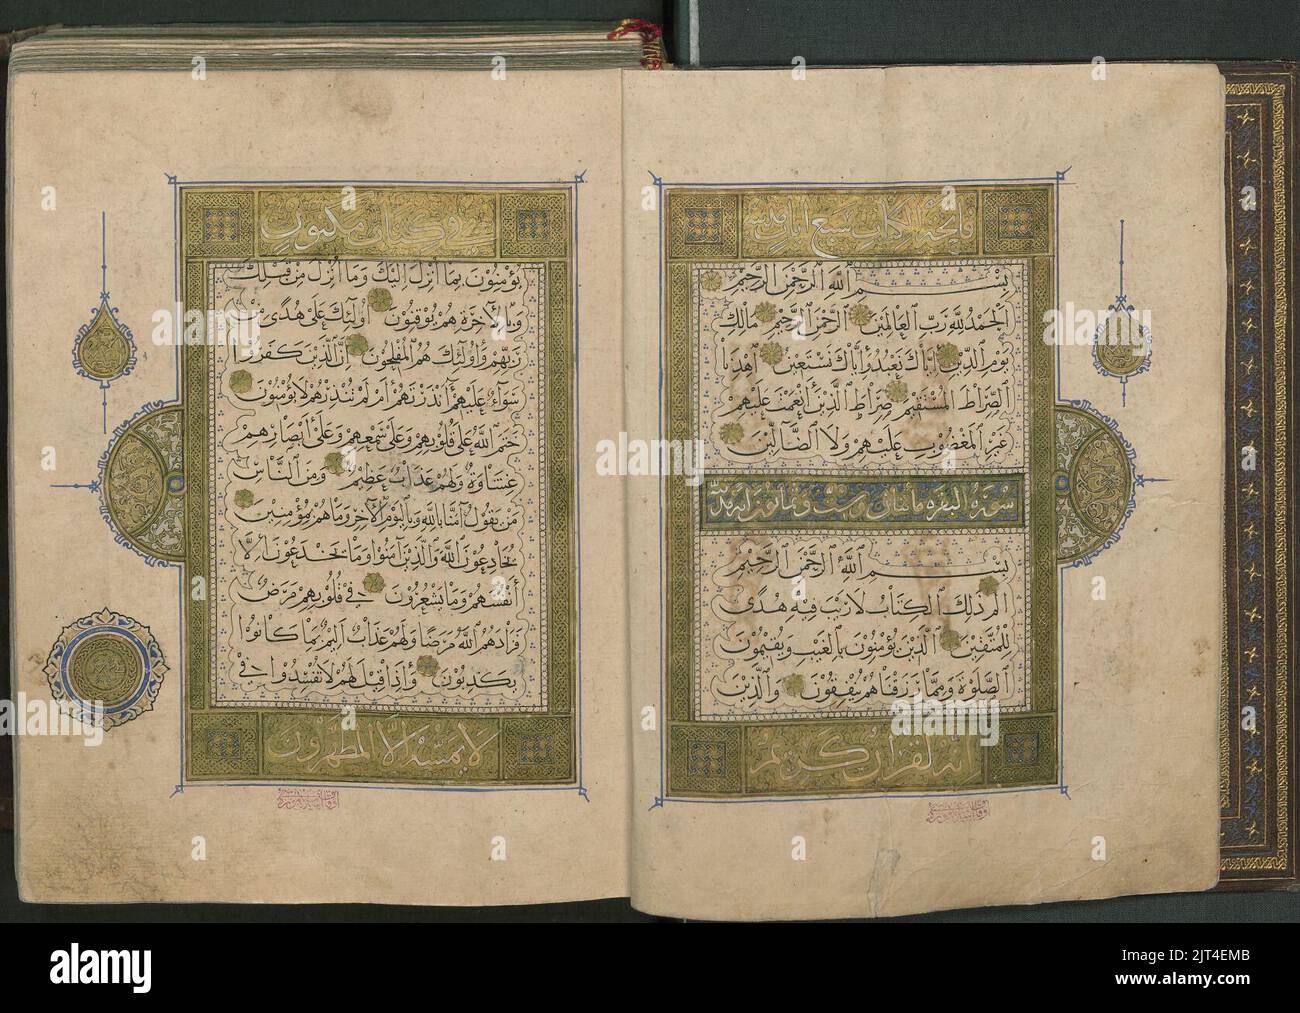 فاتحة الكتاب سبع آيات مدنية
بِسْمِ اللَّهِ الرَّحْمَٰنِ الرَّحِيمِ
الْحَمْدُ لِلَّهِ رَبِّ الْعَالَمِينَ الرَّحْمَٰنِ الرَّحِيمِ مَالِكِ
يَوْمِ الدِّينِ إِيَّاكَ نَعْبُدُ وَإِيَّاكَ نَسْتَعِينُ اهْدِنَا
الصِّرَاطَ الْمُسْتَقِيمَ صِرَاطَ الَّذِينَ أَنْعَمْتَ عَلَيْهِمْ
غَيْرِ الْمَغْضُوبِ عَلَيْهِمْ وَلَا الضَّالِّينَ
سورة البقرة مائتان وست وثمانون آية مدنية
بِسْمِ اللَّهِ الرَّحْمَٰنِ الرَّحِيمِ
الم ذَٰلِكَ الْكِتَابُ لَا رَيْبَ فِيهِ هُدًى
لِلْمُتَّقِينَ الَّذِينَ يُؤْمِنُونَ بِالْغَيْبِ وَيُقِيمُونَ
الصَّلَوٰةَ وَمِمَّا رَزَقْنَاهُمْ يُنْفِقُونَ وَالَّذِينَ
إنه لقرآن كريم
في كتاب مكنون
يُؤْمِنُونَ بِمَا أُنْزِلَ إِلَيْكَ وَمَا أُنْزِلَ مِنْ قَبْلِكَ
وَبِالْآخِرَةِ هُمْ يُوقِنُونَ أُولَٰئِكَ عَلَىٰ هُدًى مِنْ
رَبِّهِمْ وَأُولَٰئِكَ هُمُ الْمُفْلِحُونَ إِنَّ الَّذِينَ كَفَرُوا
سَوَاءٌ عَلَيْهِمْ أَأَنْذَرْتَهُمْ أَمْ لَمْ تُنْذِرْهُمْ لَا يُؤْمِنُونَ
خَتَمَ اللَّهُ عَلَىٰ قُلُوبِهِمْ وَعَلَىٰ سَمْعِهِمْ وَعَلَىٰ أَبْصَارِهِمْ
غِشَاوَةٌ وَلَهُمْ عَذَابٌ عَظِيمٌ وَمِنَ النَّاسِ
مَنْ يَقُولُ آمَنَّا بِاللَّهِ وَبِالْيَوْمِ الْآخِرِ وَمَا هُمْ بِمُؤْمِنِينَ
يُخَادِعُونَ اللَّهَ وَالَّذِينَ آمَنُوا وَمَا يَخْدَعُونَ إِلَّا
أَنْفُسَهُمْ وَمَا يَشْعُرُونَ فِي قُلُوبِهِمْ مَرَضٌ
فَزَادَهُمُ اللَّهُ مَرَضًا وَلَهُمْ عَذَابٌ أَلِيمٌ بِمَا كَانُوا
يَكْذِبُونَ وَإِذَا قِيلَ لَهُمْ لَا تُفْسِدُوا فِي
لا يمسه إلا المطهرون
alamy
Image ID: 2JT4EMB
www.alamy.com